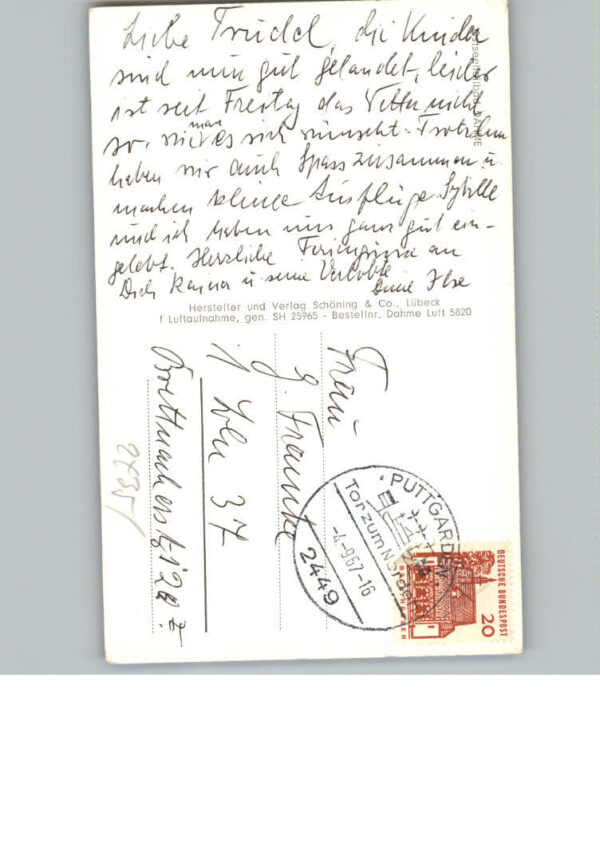 Liebe Trudel, die Kinder
sind nun gut gelandet, leider
ist seit Freitag das Wetter nicht
so, wie man es sich wünscht. Trotzdem
haben wir auch Spass zusammen u.
machen kleine Ausflüge. Sybille
und ich haben uns ganz gut ein-
gelebt. Herzliche Feriengrüsse an
Dich, Rainer u. seine Verlobte
Deine Ilse
Hersteller und Verlag Schöning & Co., Lübeck
f Luftaufnahme, gen. SH 25965 - Bestellnr. Dahme Luft 5820
Frau
G. Francke
1 Bln 37
27351
PUTTGARDEN
Tor zum Norden
-4-9.67-16
2449
DEUTSCHE BUNDESPOST
20